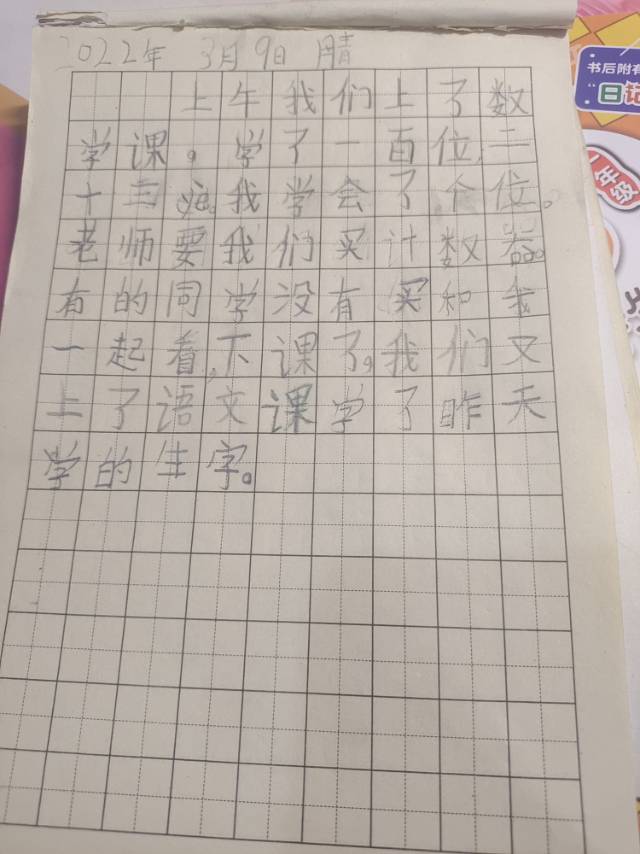 2022年 3月9日 晴
上午我们上了数
学课。学了一百位,二
十三 我学会了个位。
老师要我们买计数器。
有的同学没有买和我
一起看,下课了,我们又
上了语文课学了昨天
学的生字。
书后附有
"日记
年级